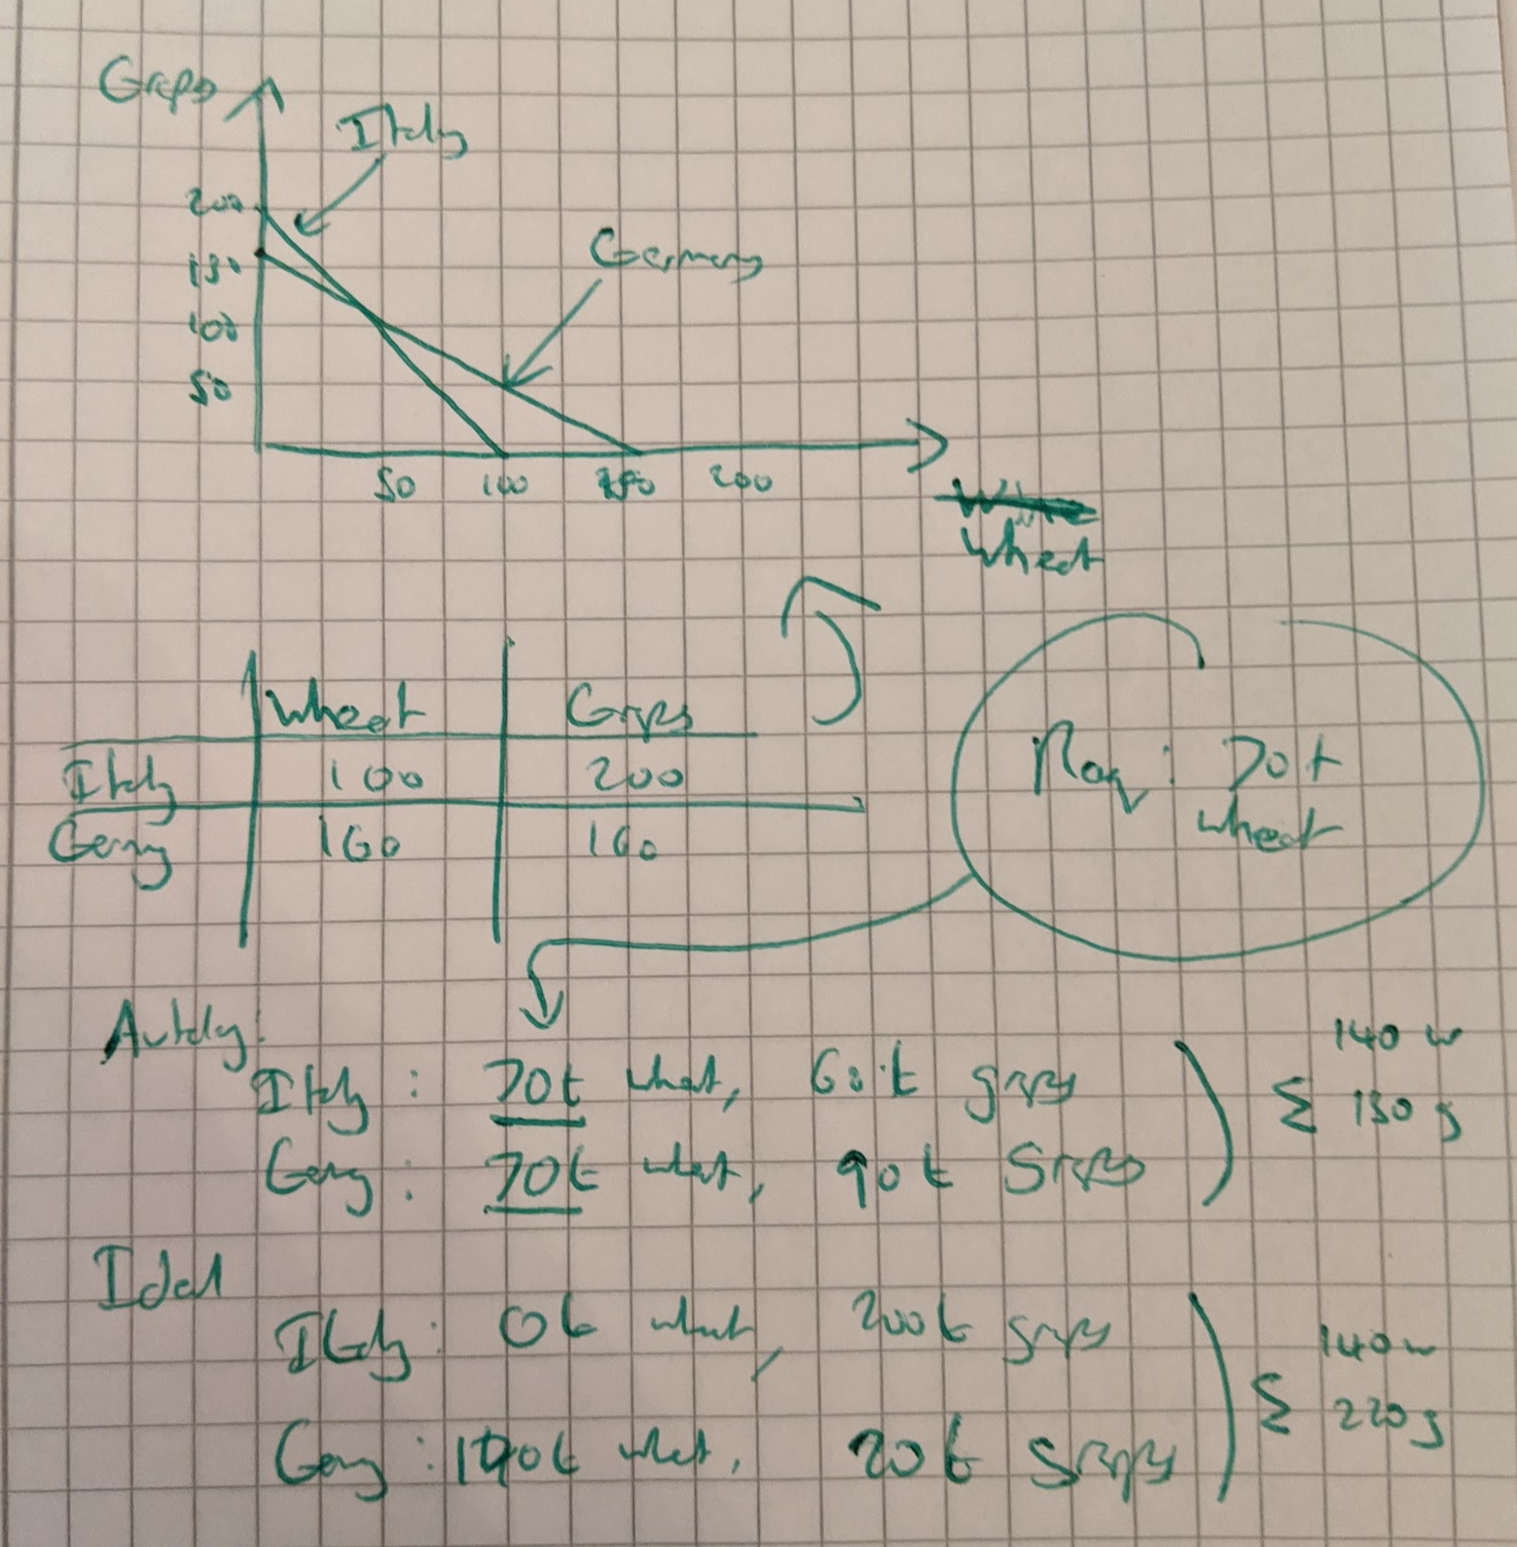 Graps
Italy
200
Germany
150
100
50
50 100 150 200
wheat
Wheat Graps
Italy 100 200
Germany 160 160
Req: 70t
wheat
Autarky:
Italy: 70t wheat, 60t graps
Germany: 70t wheat, 90t graps
Σ 140 w
150 g
Ideal
Italy: 0t wheat, 200t graps
Germany: 140t wheat, 20t graps
Σ 140 w
220 g